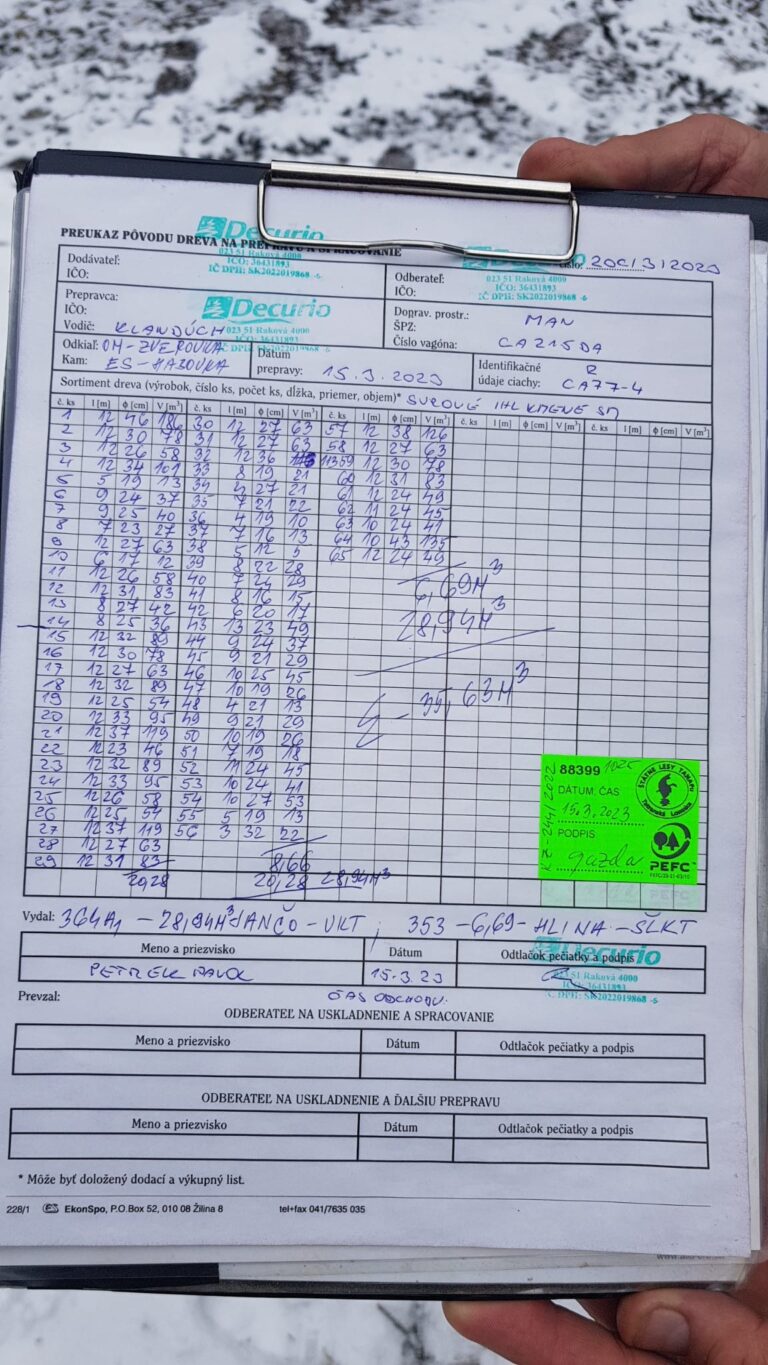 PREUKAZ PÔVODU DREVA NA PREPRAVU A SPRACOVANIE
Decurio
023 51 Raková 4000
IČO: 36431893
IČ DPH: SK2022019868 -6
023 51 Raková 4000
IČO: 36431893
IČ DPH: SK2022019868 -6
Dodávateľ:
IČO:
Odberateľ:
IČO:
Prepravca:
IČO:
Vodič: KLANDUCH
Decurio
023 51 Raková 4000
Doprav. prostr.: MAN
ŠPZ:
Číslo vagóna: CA215DA
Odkiaľ: OM-ZVEROVKA
Kam: ES-HABOVKA
Dátum
prepravy: 15.3.2023
Identifikačné 2
údaje ciachy: CA77-4
Sortiment dreva (výrobok, číslo ks, počet ks, dĺžka, priemer, objem)* SUROVÉ IHL KMENE SM
č. ks l [m] ϕ [cm] V [m³] č. ks l [m] ϕ [cm] V [m³] č. ks l [m] ϕ [cm] V [m³] č. ks l [m] ϕ [cm] V [m³] č. ks l [m] ϕ [cm] V [m³]
1 12 46 186 30 12 27 63 57 12 38 126
2 12 30 78 31 12 27 63 58 12 27 63
3 12 26 58 32 12 36 113 59 12 30 78
4 12 34 101 33 8 19 21 60 12 31 83
5 5 19 13 34 4 27 21 61 12 24 49
6 9 24 37 35 7 21 22 62 11 24 45
7 9 25 40 36 4 19 10 63 10 24 41
8 7 23 27 37 7 16 13 64 10 43 135
9 12 27 63 38 5 12 5 65 12 24 49
10 6 17 12 39 8 22 28
11 12 26 58 40 7 24 29
12 12 31 83 41 8 16 15
13 8 27 42 42 6 20 17
14 8 25 36 43 13 23 49
15 12 32 89 44 9 24 37
16 12 30 78 45 9 21 29
17 12 27 63 46 10 25 45
18 12 32 89 47 10 19 26
19 12 25 54 48 4 21 13
20 12 33 95 49 9 21 29
21 12 37 119 50 10 19 26
22 12 23 46 51 7 19 18
23 12 32 89 52 11 24 45
24 12 33 95 53 10 24 41
25 12 26 58 54 10 27 53
26 12 25 54 55 5 19 13
27 12 37 119 56 3 32 22
28 12 27 63
29 12 31 83
6,69M³
28,94M³
35,63M³
8,66
20,28 20,28 28,94M³
88399 1025
DÁTUM, ČAS
15.3.2023
PODPIS
gazda
ŠTÁTNE LESY TANAPU
Tatranská Lomnica
PEFC
Vydal: 364A1 - 28,94M³ JANČO - VKT ; 353 - 6,69 - HLINA - ŠLKT
Meno a priezvisko Dátum Odtlačok pečiatky a podpis
PETREK PAVOL 15.3.23
Decurio
023 51 Raková 4000
IČ DPH: SK2022019868 -6
Prevzal: ČAS ODCHODU.
ODBERATEĽ NA USKLADNENIE A SPRACOVANIE
Meno a priezvisko Dátum Odtlačok pečiatky a podpis
ODBERATEĽ NA USKLADNENIE A ĎALŠIU PREPRAVU
Meno a priezvisko Dátum Odtlačok pečiatky a podpis
* Môže byť doložený dodací a výkupný list.
228/1 EkonSpo, P.O.Box 52, 010 08 Žilina 8 tel+fax 041/7635 035